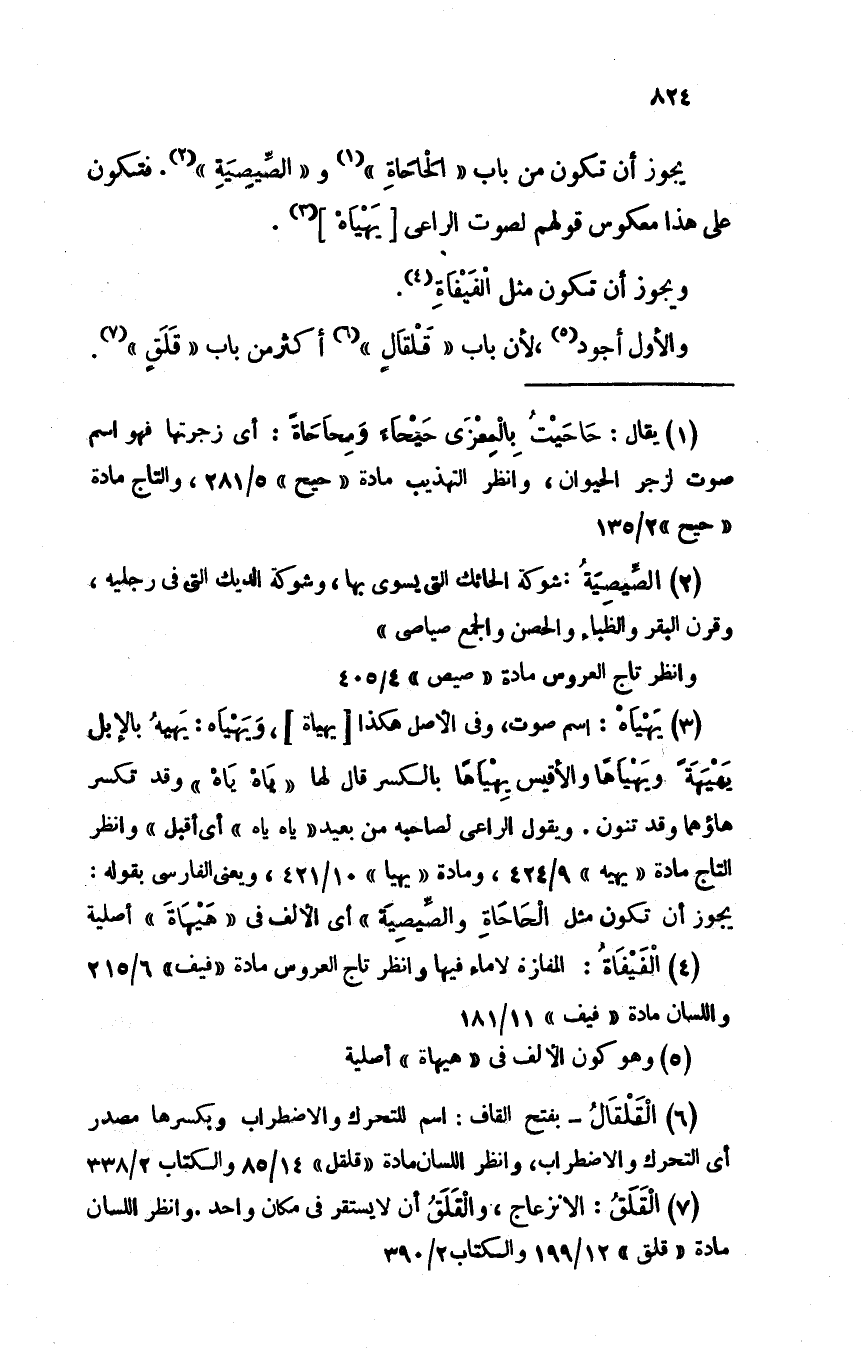 ٨٢٤
يجوز أن تكون من باب « الْحَاحَاةِ »(١) و « الصِّيصِيَةِ »(٢) . فتكون
على هذا معكوس قولهم لصوت الراعى [ يَهْيَاهْ ](٣) .
ويجوز أن تكون مثل الْفَيْفَاةِ(٤) .
والأول أجود(٥) ، لأن باب « قَلْقَالٍ »(٦) أكثر من باب « قَلَقٍ »(٧) .
(١) يقال : حَاحَيْتُ بِالْمِعْزَى حَيْحَاءَ وَمِحَاحَاةً : أى زجرتها فهو اسم
صوت لزجر الحيوان ، وانظر التهذيب مادة « حيح » ٢٨١/٥ ، والتاج مادة
« حيح » ١٣٥/٢
(٢) الصِّيصِيَةُ : شوكة الحائك التى يسوى بها ، وشوكة الديك التى فى رجليه ،
وقرن البقر والظباء والحصن والجمع صياصى »
وانظر تاج العروس مادة « صيص » ٤٠٥/٤
(٣) يَهْيَاهْ : اسم صوت، وفى الأصل هكذا [ يهياة ] ، وَيَهْيَاه : يَهيهُ بالإبل
يَهْيَهَةً ويَهْيَاهًا والأقيس يِهْيَاهًا بالكسر قال لها « يَاهْ يَاهْ » وقد تكسر
هاؤهما وقد تنون . ويقول الراعى لصاحبه من بعيد « ياه ياه » أى أقبل » وانظر
التاج مادة « يهيه » ٤٢٤/٩ ، ومادة « يهيا » ٤٢١/١٠ ، ويعنى الفارسى بقوله :
يجوز أن تكون مثل الْحَاحَاةِ والصِّيصِيَةَ » أى الألف فى « هَيْهَاةَ » أصلية
(٤) الْفَيْفَاةُ : المفازة لا ماء فيها وانظر تاج العروس مادة « فيف » ٢١٥/٦
واللسان مادة « فيف » ١٨١/١١
(٥) وهو كون الألف فى « هيهاة » أصلية
(٦) الْقَلْقَالُ – بفتح القاف : اسم للتحرك والاضطراب وبكسرها مصدر
أى التحرك والاضطراب، وانظر اللسان مادة « قلقل » ٨٥/١٤ والكتاب ٣٣٨/٢
(٧) الْقَلَقُ : الانزعاج ، والْقَلَقُ أن لا يستقر فى مكان واحد . وانظر اللسان
مادة « قلق » ١٩٩/١٢ والكتاب ٣٩٠/٢